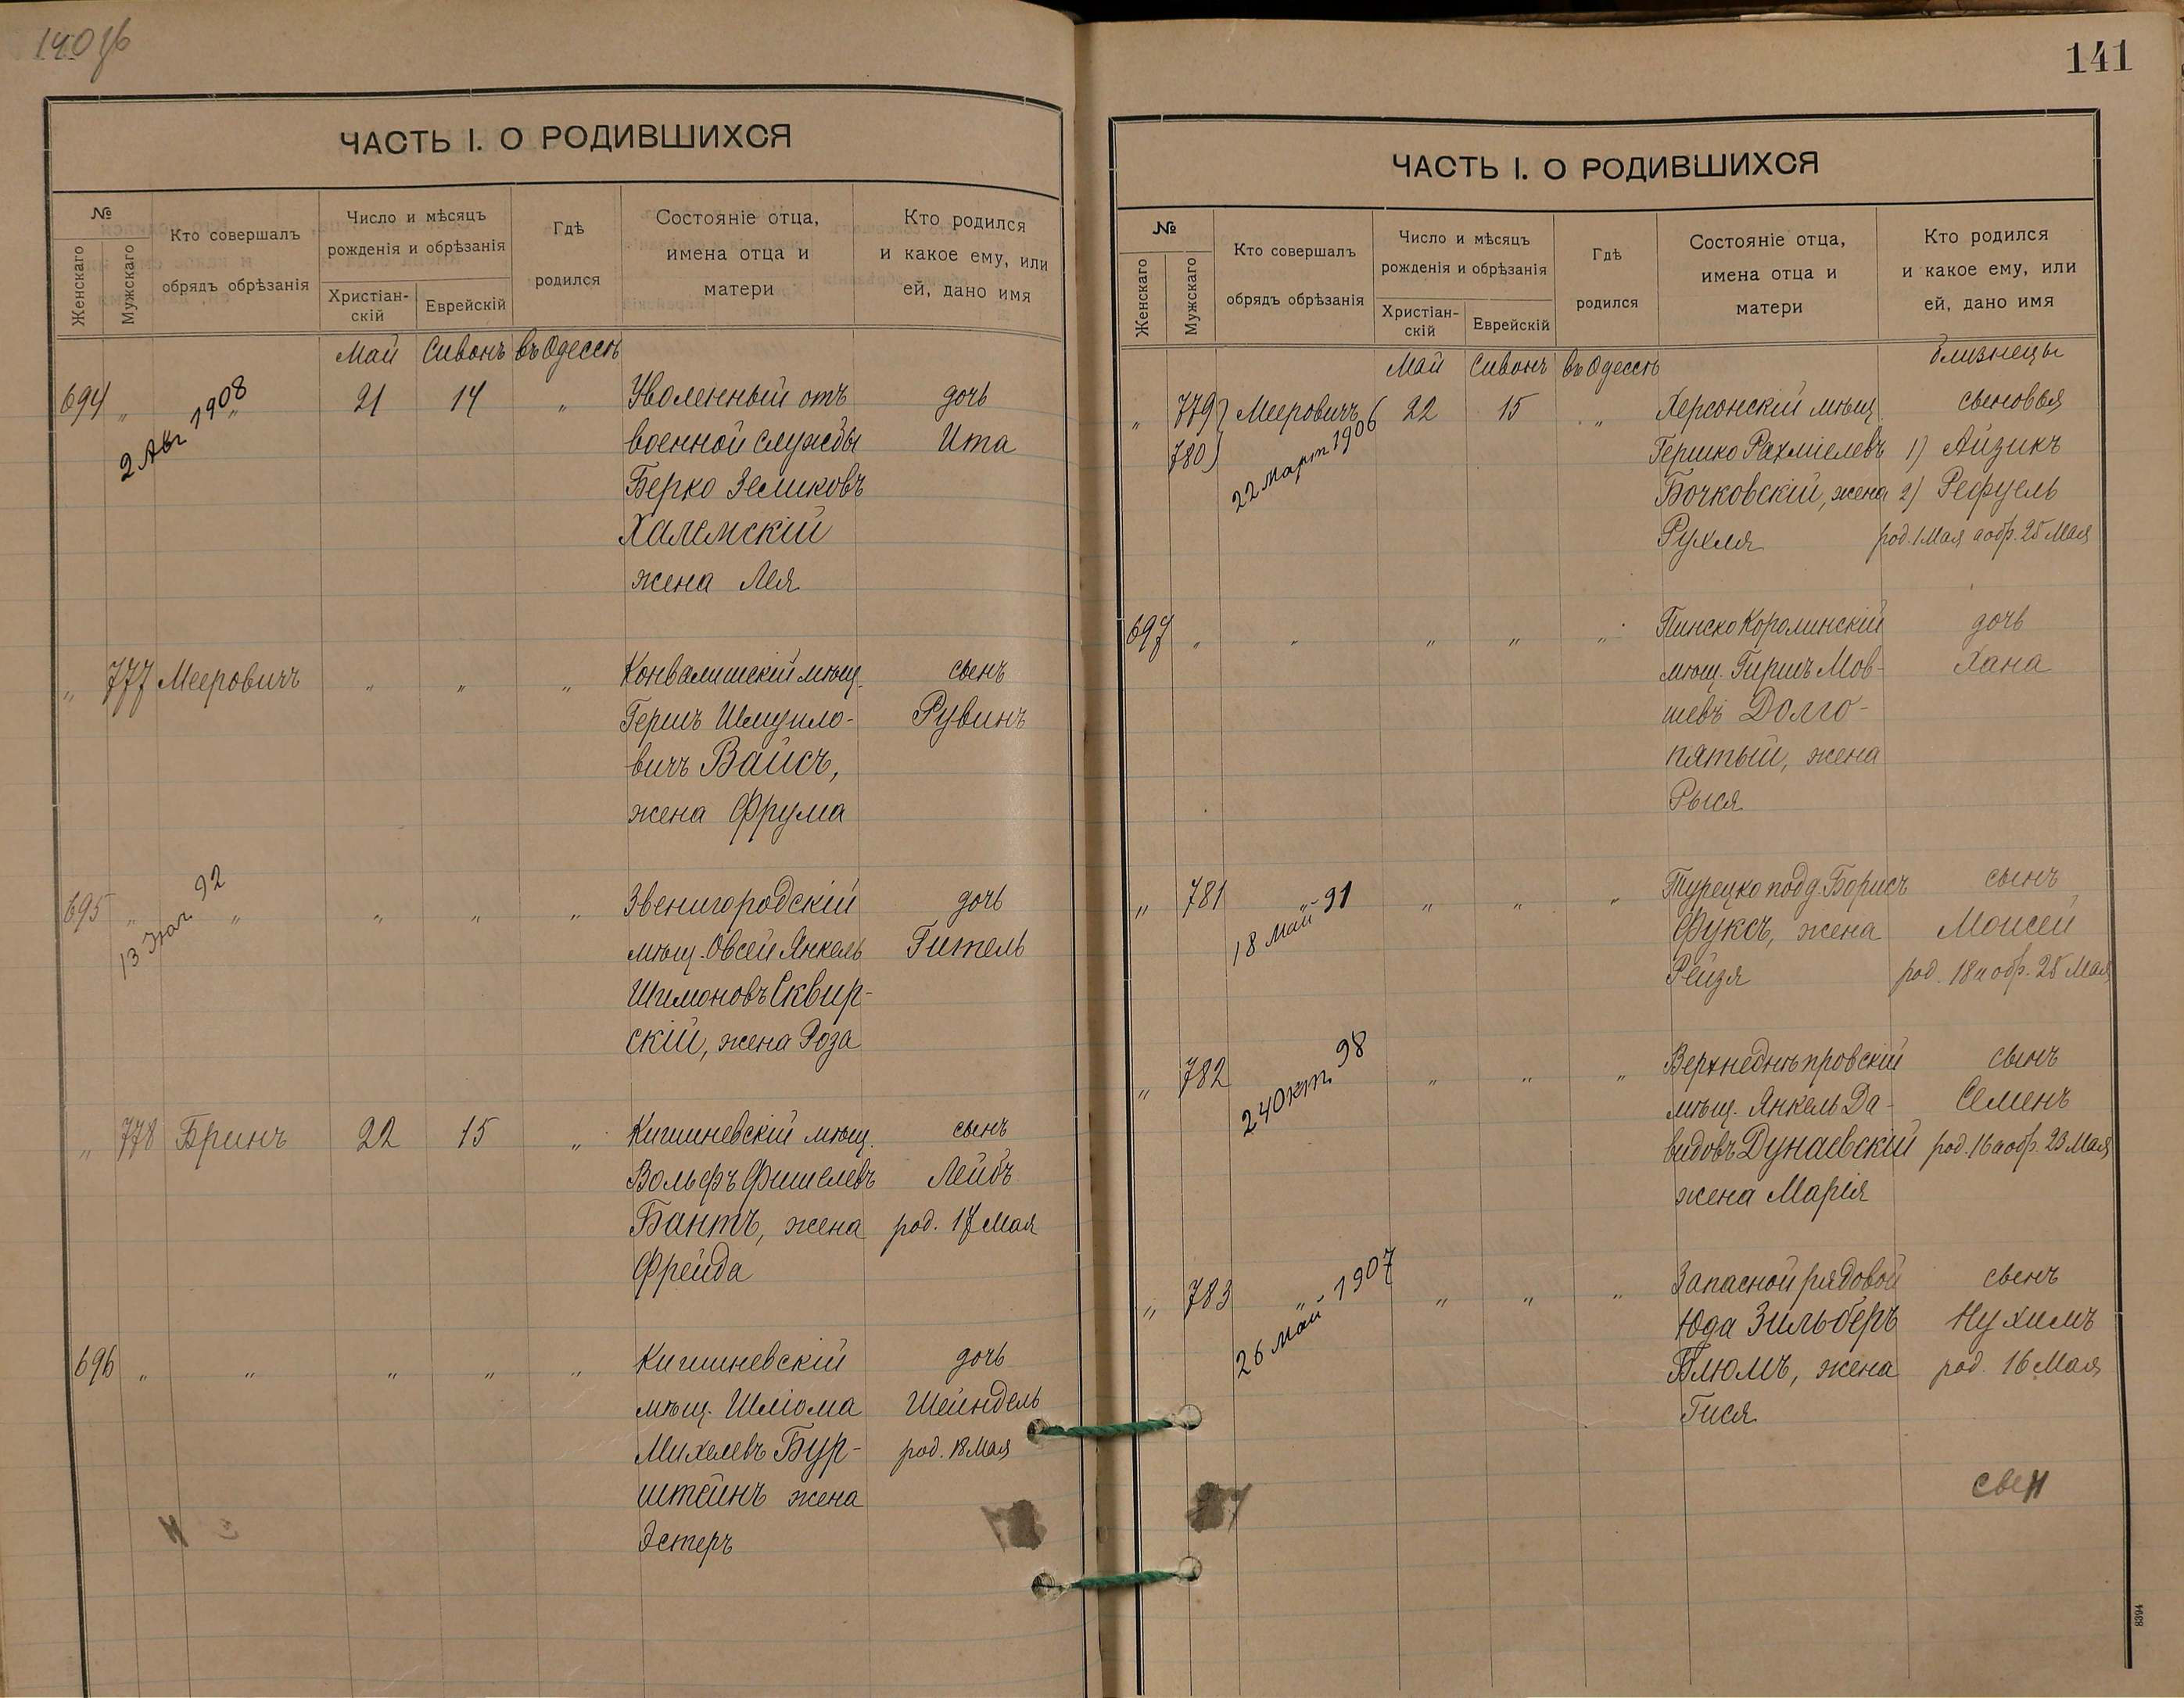 140 об
ЧАСТЬ I. О РОДИВШИХСЯ
№
Женскаго
Мужскаго
Кто совершалъ
обрядъ обрѣзанія
Число и мѣсяцъ
рожденія и обрѣзанія
Христіан-
скій
Еврейскій
Гдѣ
родился
Состояніе отца,
имена отца и
матери
Кто родился
и какое ему, или
ей, дано имя
Май Сивонъ въ Одессѣ
694 „ „ 21 14 „ Уволенный отъ дочь
2 Авг 1908
военной службы Ита
Берко Зеликовъ
Халемскій
жена Лея
„ 777 Мееровичъ „ „ „ Конвалишскій мѣщ. сынъ
Гершъ Шмуило- Рувинъ
вичъ Вайсъ,
жена Фрума
695 „ „ „ „ „ Звенигородскій дочь
92
мѣщ. Овсей Янкель Гитель
Шимоновъ Сквир-
скій, жена Роза
„ 778 Бринъ 22 15 „ Кишиневскій мѣщ. сынъ
Вольфъ Фишелевъ Лейбъ
Бантъ, жена род. 17 Мая
Фрейда
696 „ „ „ „ „ Кишиневскій дочь
мѣщ. Шліома Шейндель
Михелевъ Бур- род. 18 Мая
штейнъ жена
Эстеръ
141
ЧАСТЬ I. О РОДИВШИХСЯ
№
Женскаго
Мужскаго
Кто совершалъ
обрядъ обрѣзанія
Число и мѣсяцъ
рожденія и обрѣзанія
Христіан-
скій
Еврейскій
Гдѣ
родился
Состояніе отца,
имена отца и
матери
Кто родился
и какое ему, или
ей, дано имя
Май Сивонъ въ Одессѣ близнецы
„ 779) Мееровичъ 22 15 „ Херсонскій мѣщ. сыновья
780)
22 март 1906
Гершко Рахміелевъ 1) Айзикъ
Бочковскій, жена 2) Рефуель
Рухля род. 1 Мая а обр. 25 Мая
697 „ „ „ „ „ Пинско Королинскій дочь
мѣщ. Гиршъ Мов- Хана
шевъ Долго-
пятый, жена
Рыся
„ 781 „ „ „ „ Турецко подд. Борисъ сынъ
18 май 91
Фуксъ, жена Моисей
Рейзя род. 18 и обр. 25 Мая
„ 782 „ „ „ Верхнеднѣпровскій сынъ
24 Окт. 98
мѣщ. Янкель Да- Семенъ
видовъ Дунаевскій род. 16 а обр. 23 Мая
жена Марія
„ 783 „ „ „ „ Запасной рядовой сынъ
26 май 1907
Юда Зильберъ Нухимъ
Блюмъ, жена род. 16 Мая
Гися
8394